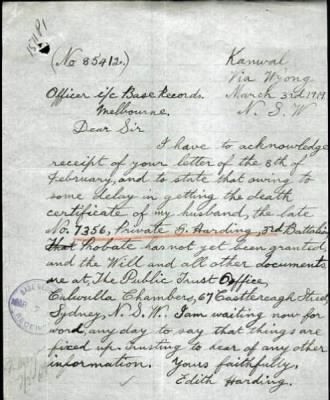 (No 85412.)
Kanwal
Via Wyong.
Officer i/c Base Records.
March 3rd. 1919.
Melbourne.
N. S. W
Dear Sir
I have to acknowledge
receipt of your letter of the 8th of
February, and to state that owing to
some delay in getting the death
certificate of my husband, the late
No. 7356, Private G. Harding, 3rd Battalion
that Probate has not yet been granted,
and the Will and all other documents
are at, The Public Trust Office,
Culwulla Chambers, 67 Castlereagh Street,
Sydney, N. S. W. I am waiting now for
word any day to say that things are
fixed up. trusting to hear of any other
information. Yours faithfully,
Edith Harding.